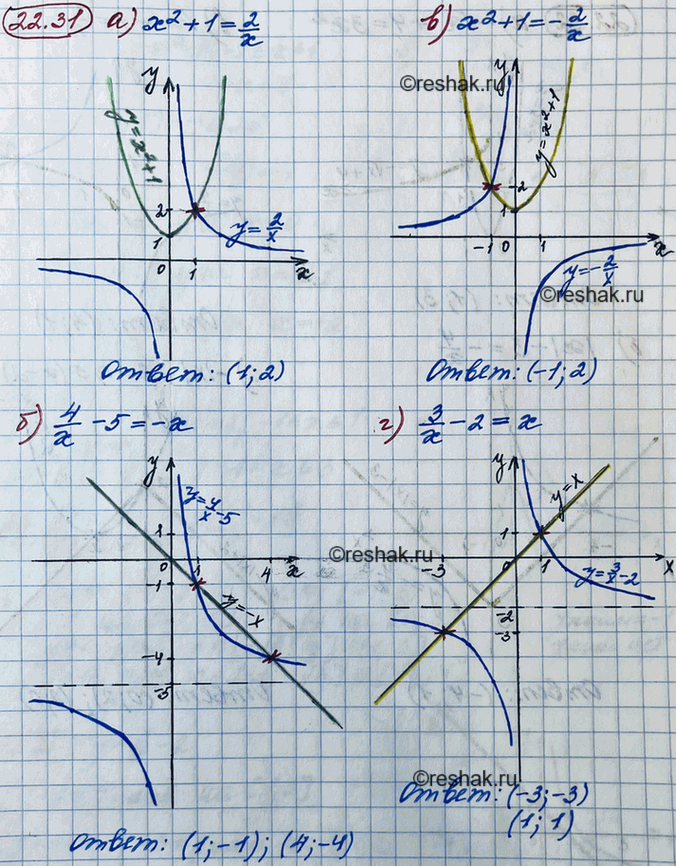 22.31 а) x² + 1 = 2/x
y
y = x² + 1
2
y = 2/x
1
0 1 x
Ответ: (1; 2)
в) x² + 1 = -2/x
©reshak.ru
y
y = x² + 1
2
1
-1 0 1 x
y = -2/x
©reshak.ru
Ответ: (-1; 2)
б) 4/x - 5 = -x
y
y = 4/x - 5
1
0 1 4 x
-1
y = -x
-4
-5
Ответ: (1; -1); (4; -4)
г) 3/x - 2 = x
y
y = x
©reshak.ru
1
-3 0 1 x
y = 3/x - 2
-2
-3
©reshak.ru
Ответ: (-3; -3)
(1; 1)